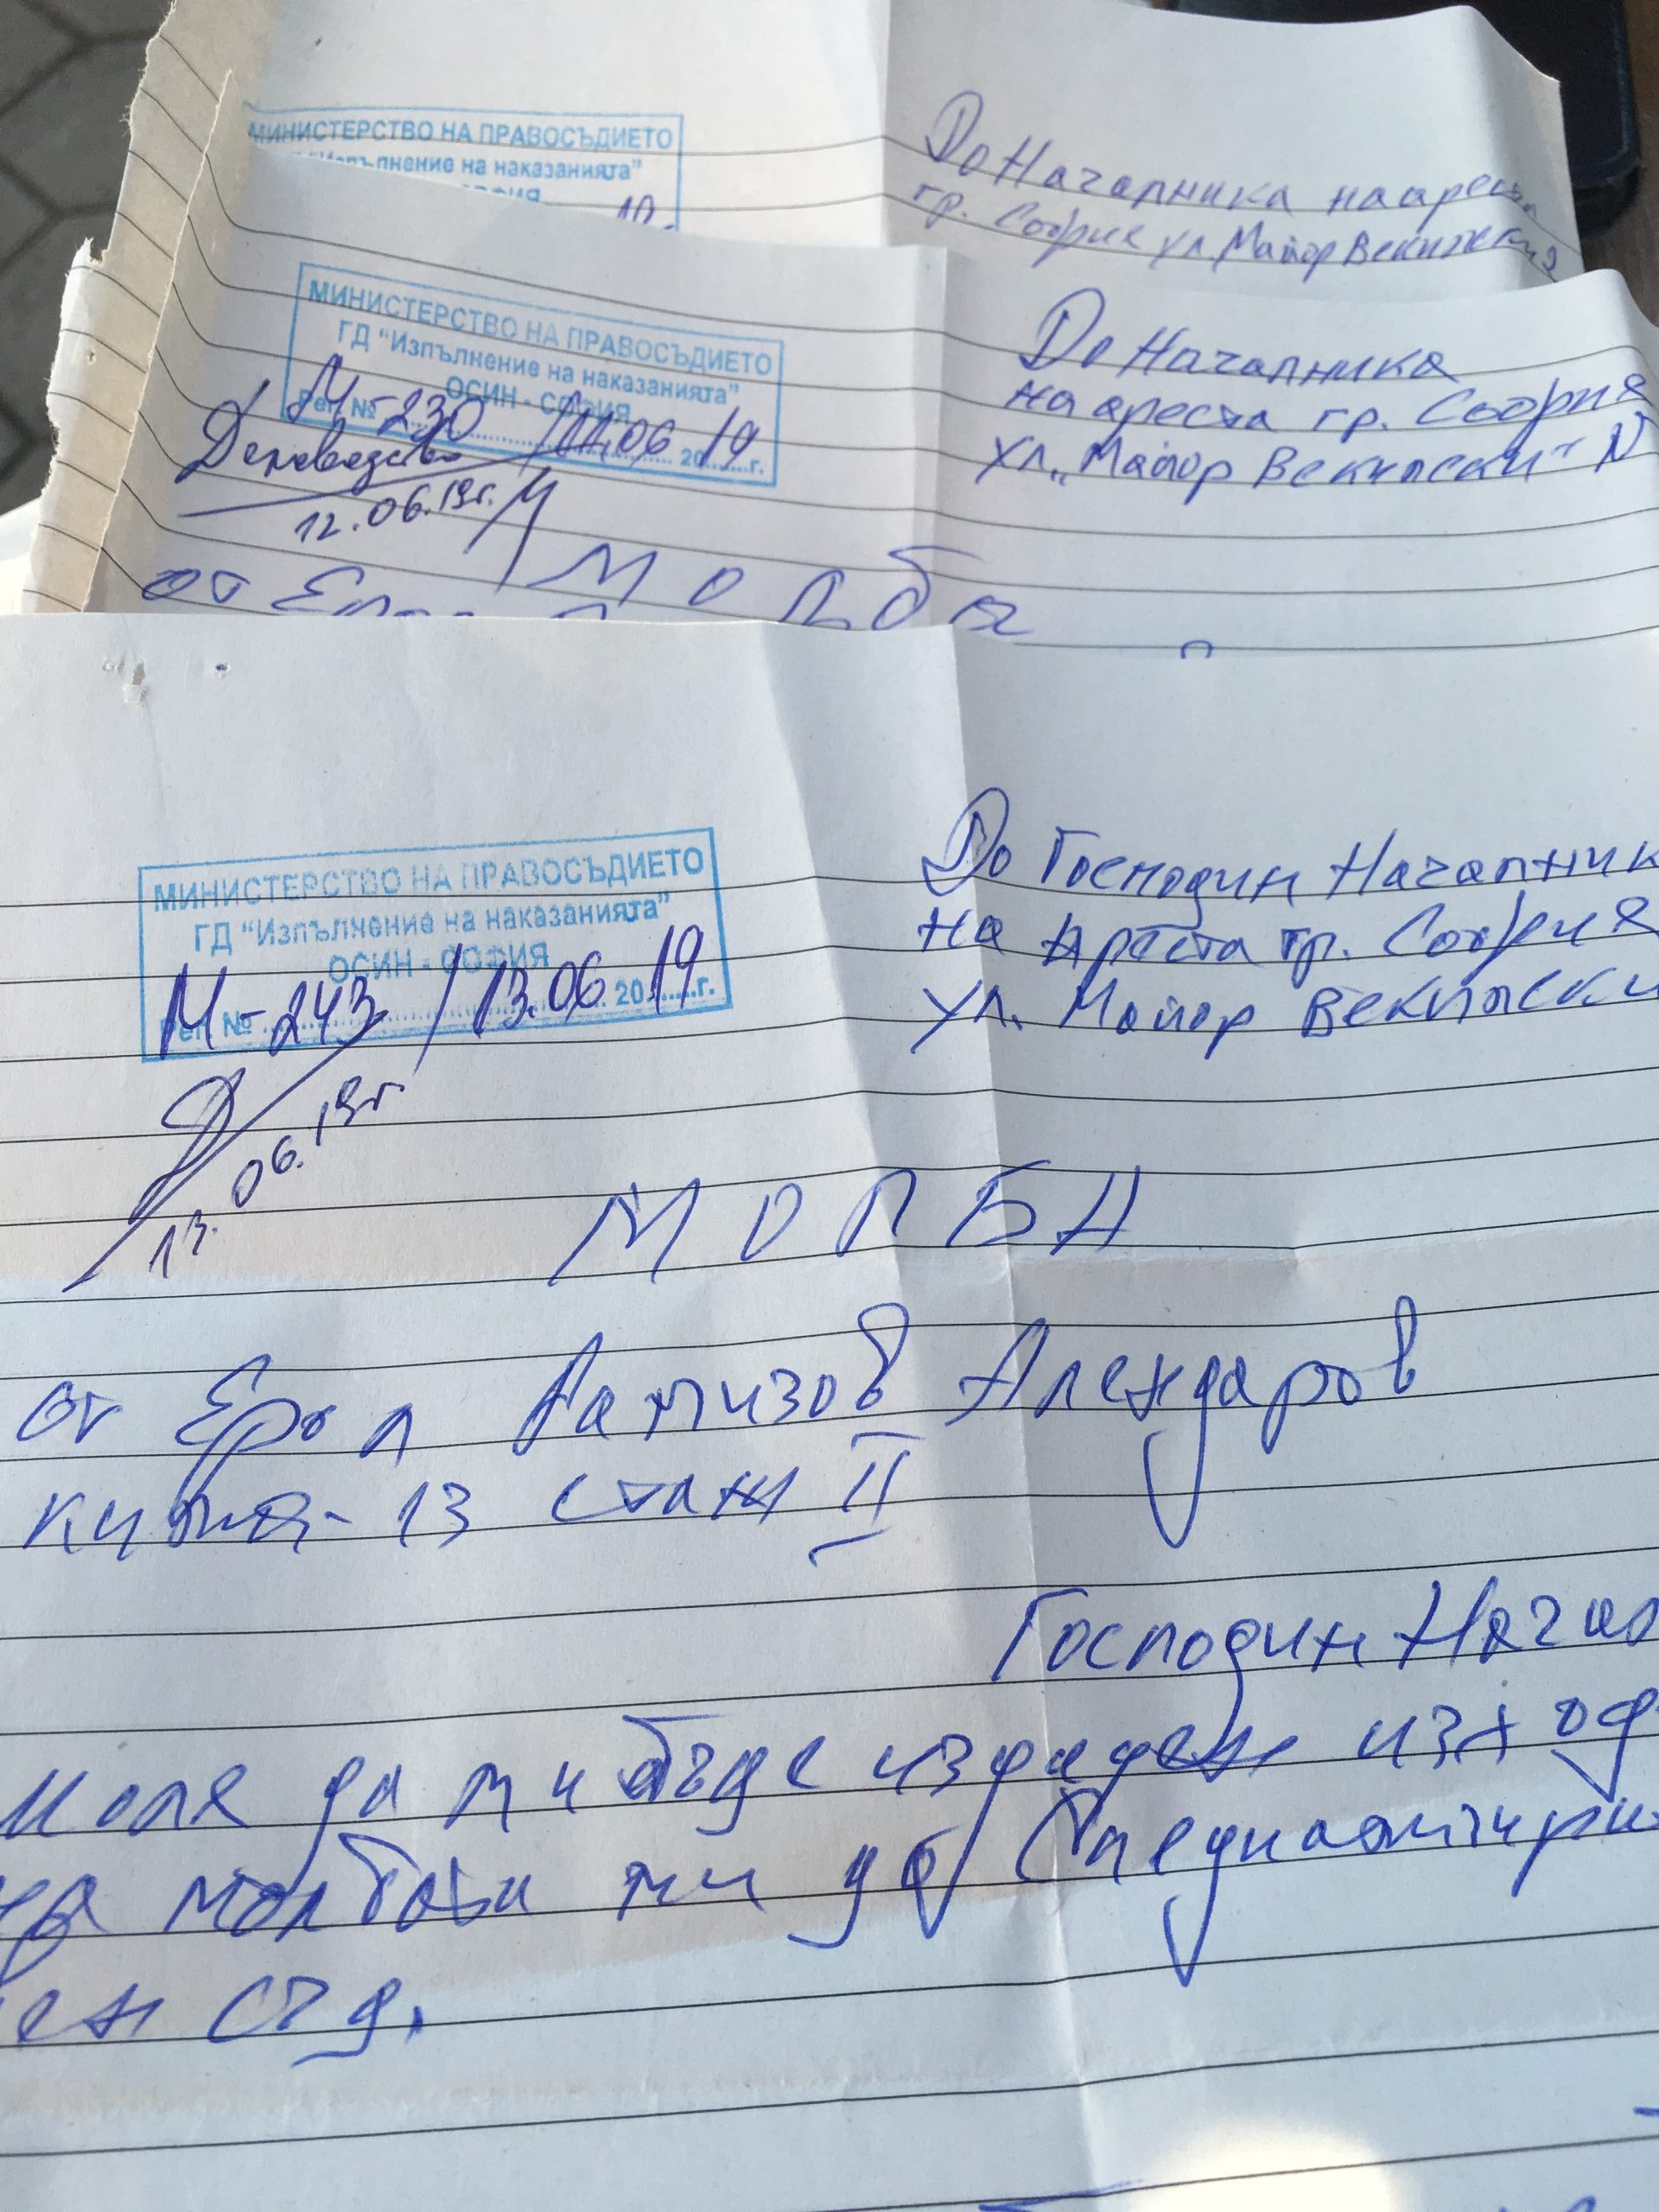 МИНИСТЕРСТВО НА ПРАВОСЪДИЕТО
"Изпълнение на наказанията"
До Началника на ареста
гр. София ул. Майор Векилски
МИНИСТЕРСТВО НА ПРАВОСЪДИЕТО
ГД "Изпълнение на наказанията"
ОСИН - СОФИЯ
Рег. № М-230 / 11.06 2019 г.
Деловодство
12.06.19г.
До Началника
на ареста гр. София
ул. "Майор Векилски" N
Молба
от
МИНИСТЕРСТВО НА ПРАВОСЪДИЕТО
ГД "Изпълнение на наказанията"
ОСИН - СОФИЯ
Рег. № М-243 / 13.06 2019 г.
13.06.19г.
До Господин Началник
на Ареста гр. София
ул. Майор Векилски
МОЛБА
от Ерол Рамизов Алендаров
килия-13 етаж II
Господин Начал
Моля да ми бъде изваден изход.
на молбата ми до Специализира
ен съд.